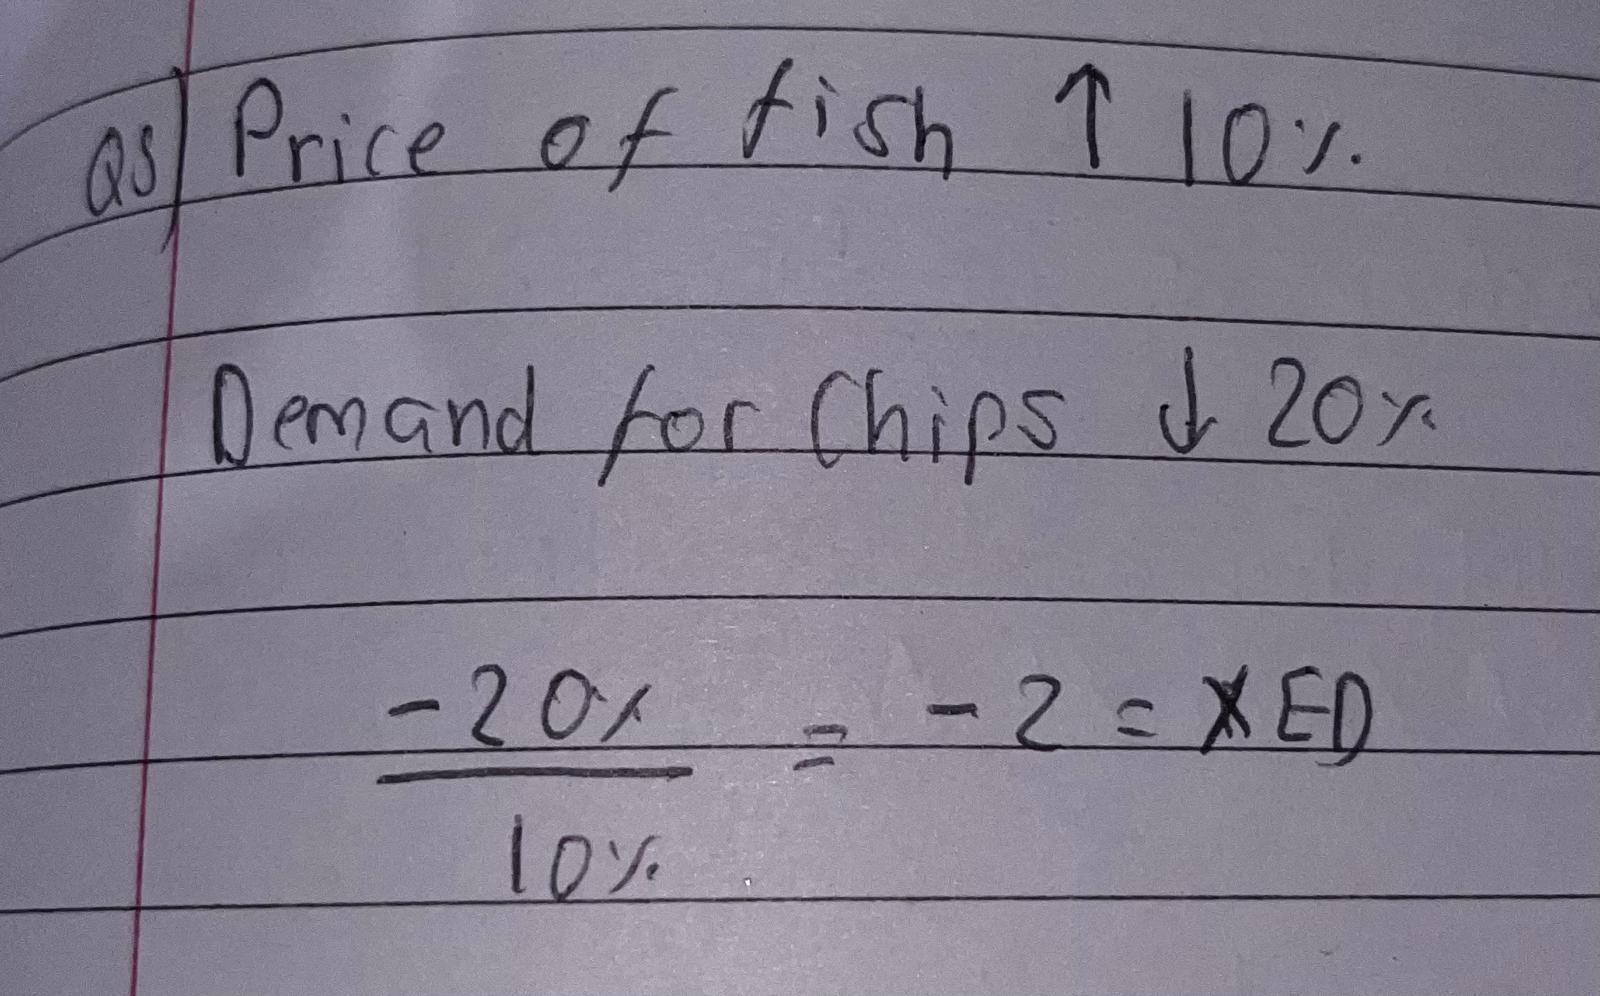 Q5 Price of fish ↑ 10%
Demand for Chips ↓ 20%
-20% = -2 = XED
10%